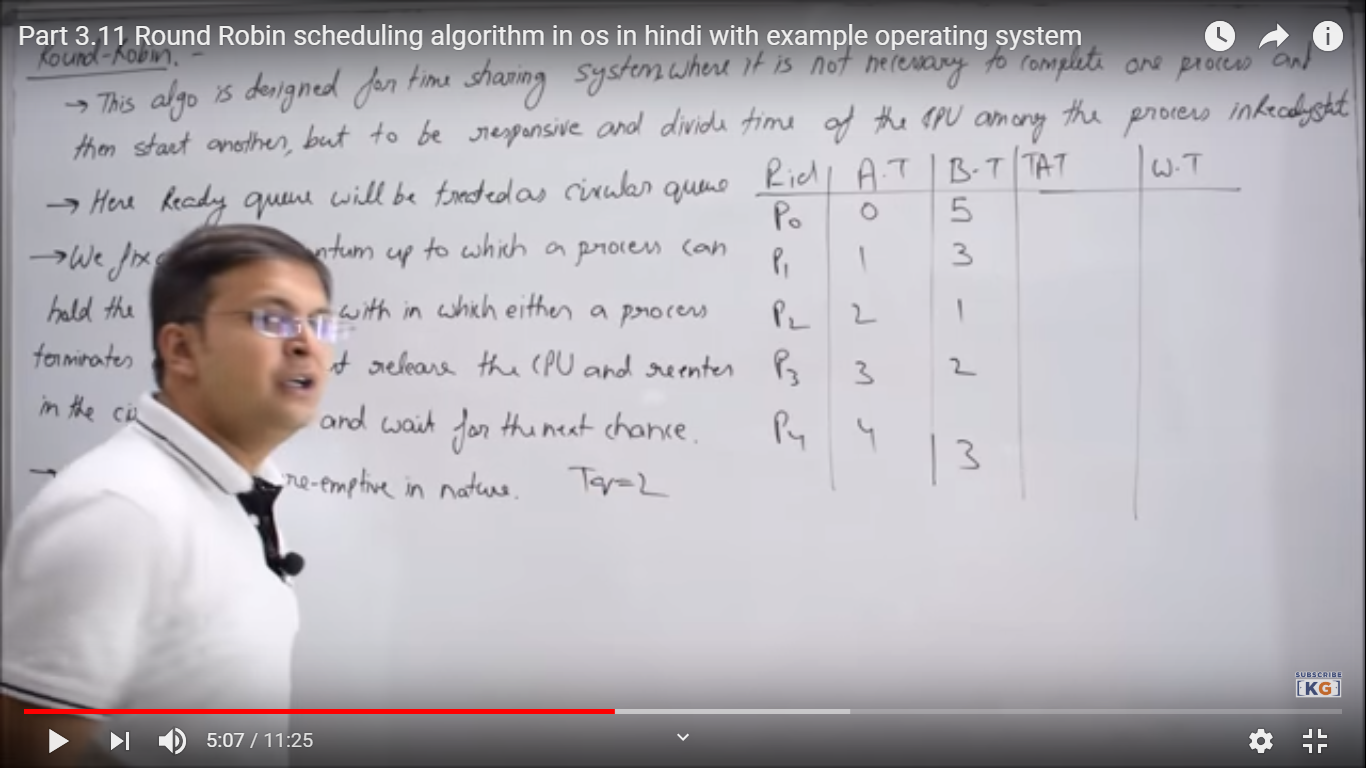 Part 3.11 Round Robin scheduling algorithm in os in hindi with example operating system
Round-Robin. -
→ This algo is designed for time sharing system where it is not necessary to complete one process and
then start another, but to be responsive and divide time of the CPU among the process in Ready
→ Here Ready queue will be treated as circular queue
→ We fix up to which a process can
hold the with in which either a process
terminates release the CPU and reenter
in the and wait for the next chance.
→ in nature. Tq=2
Pid A.T B.T TAT W.T
P0 0 5
P1 1 3
P2 2 1
P3 3 2
P4 4 3
SUBSCRIBE
[KG]
5:07 / 11:25